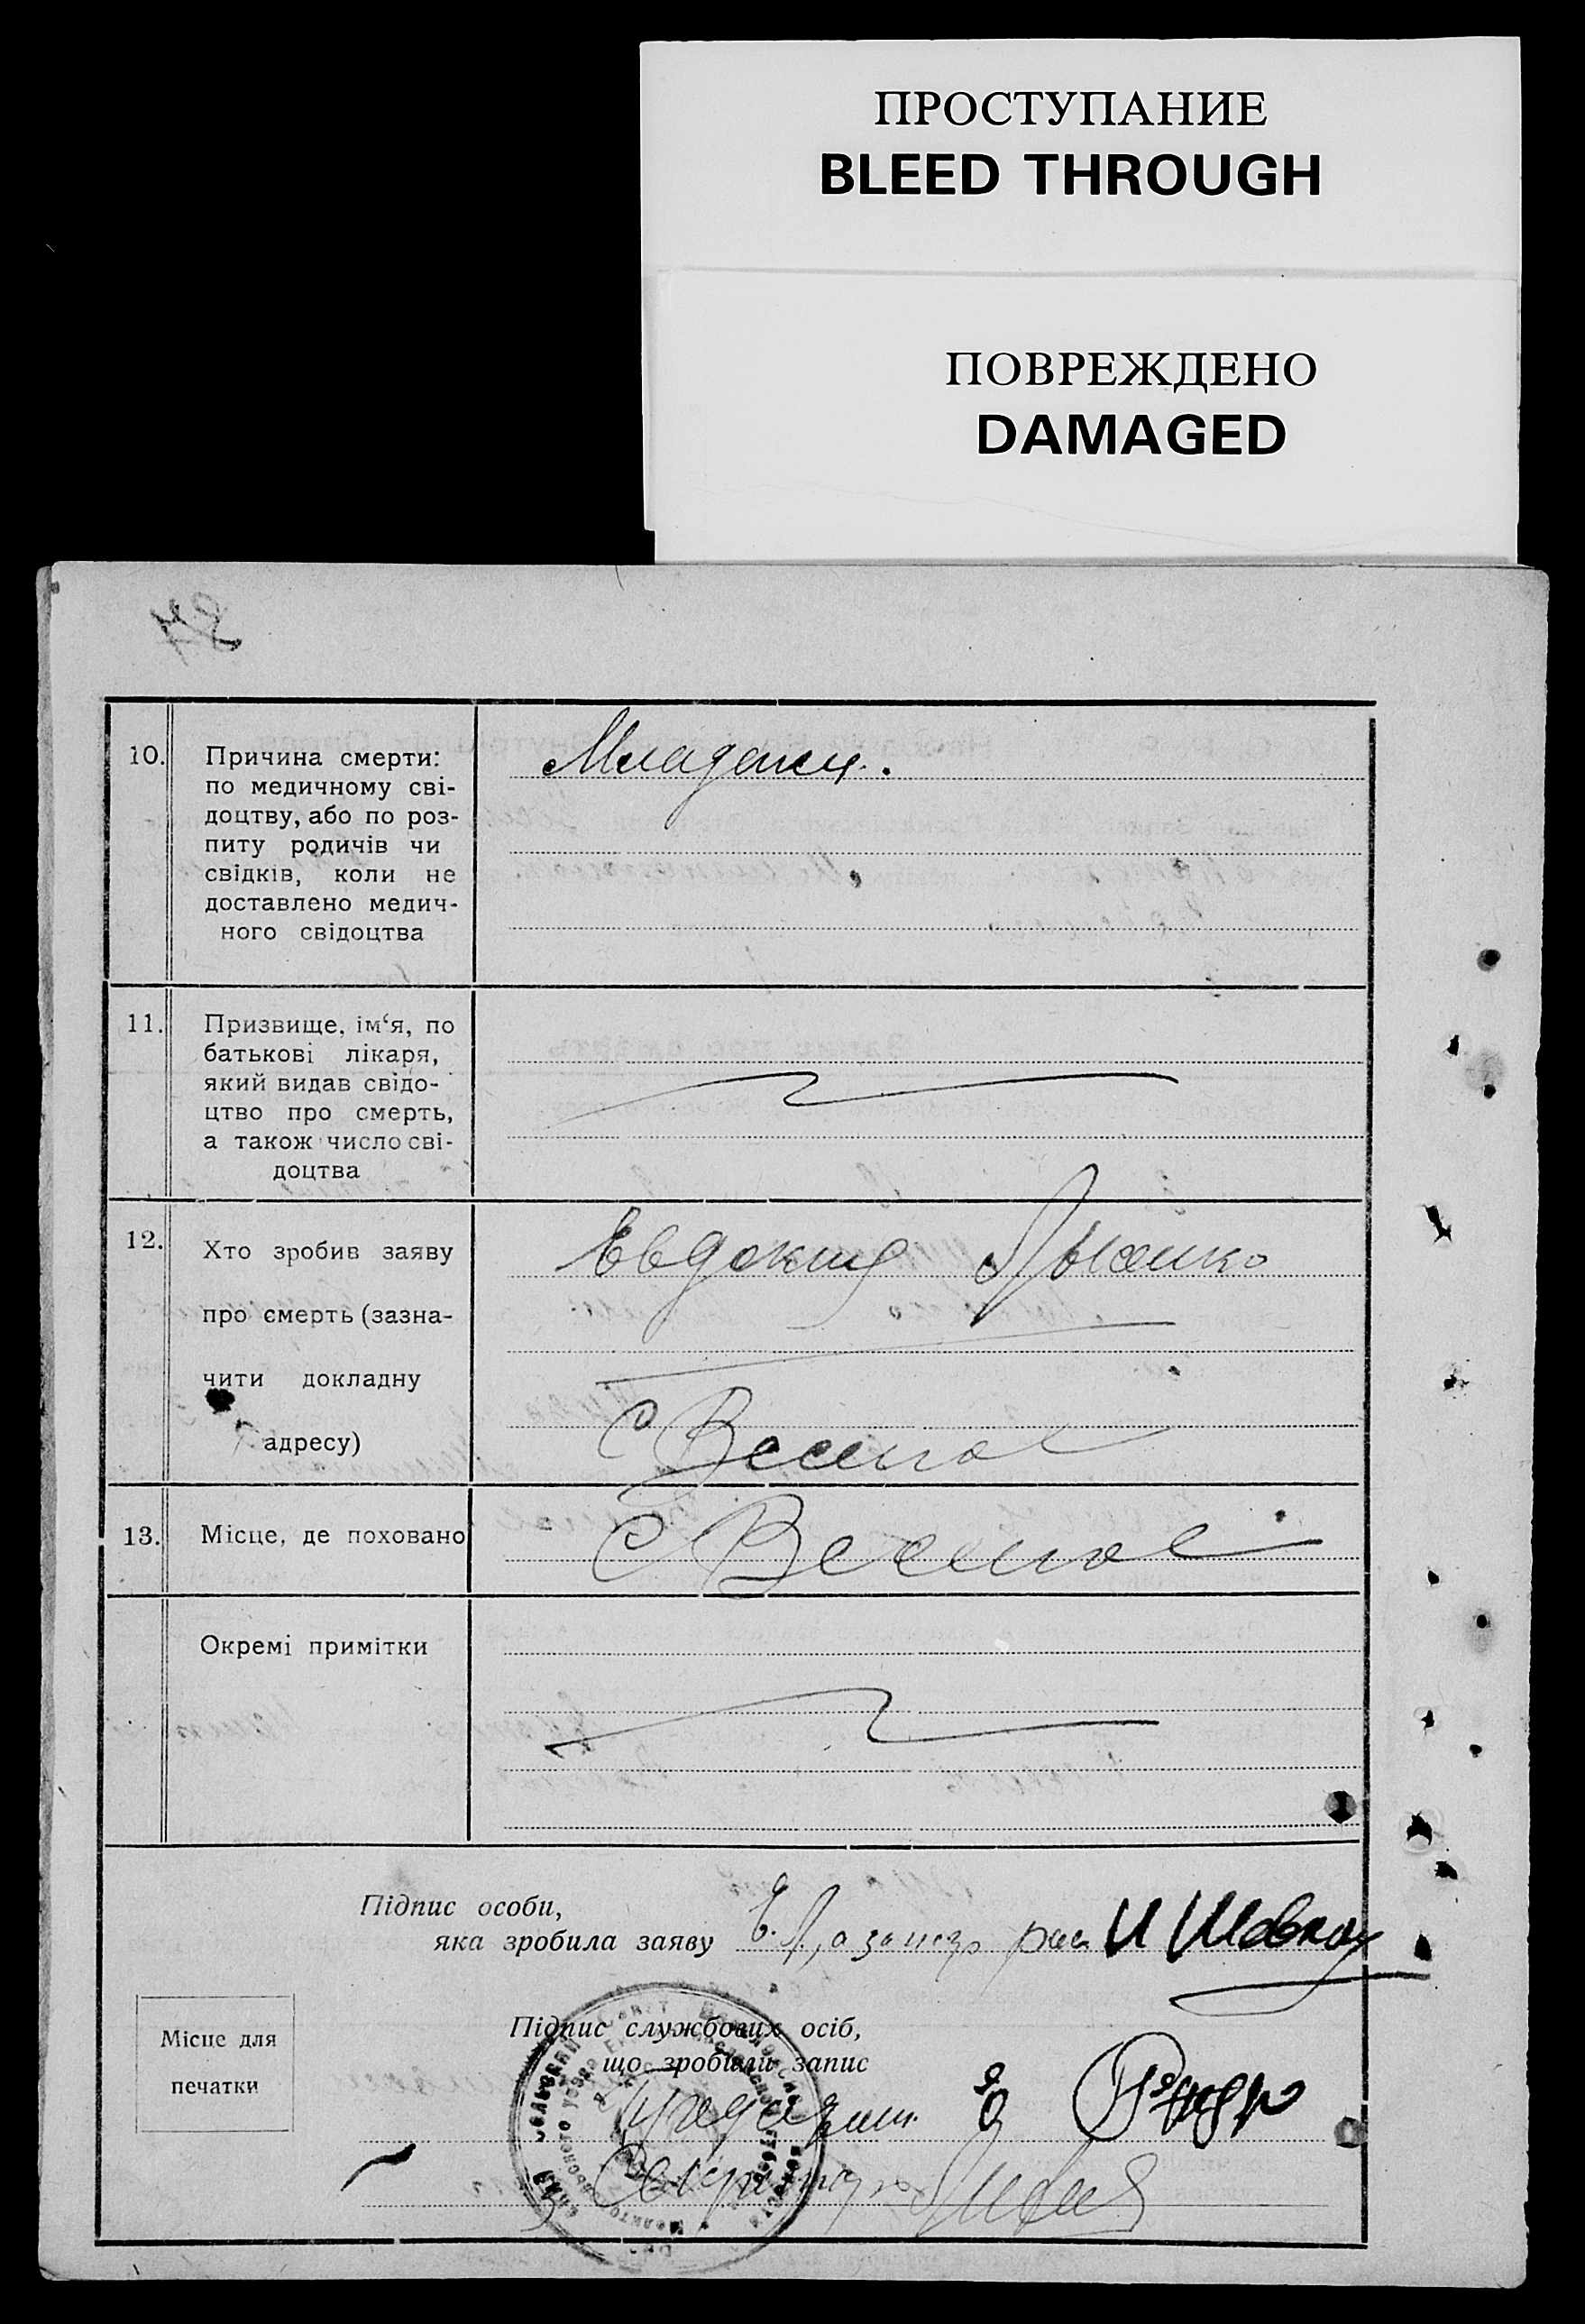 ПРОСТУПАНИЕ
BLEED THROUGH
ПОВРЕЖДЕНО
DAMAGED
10. Причина смерти:
по медичному сві-
доцтву, або по роз-
питу родичів чи
свідків, коли не
доставлено медич-
ного свідоцтва
Младенч.
11. Призвище, ім‘я, по
батькові лікаря,
який видав свідо-
цтво про смерть,
а також число сві-
доцтва
12. Хто зробив заяву
про смерть (зазна-
чити докладну
адресу)
Евдокия
с Веселое
13. Місце, де поховано
с Веселое
Окремі примітки
Підпис особи,
яка зробила заяву
Підпис службових осіб,
що зробили запис
Місце для
печатки
Секретарь